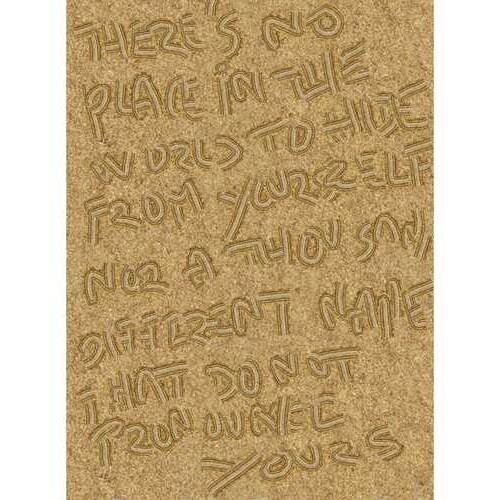 THERE'S NO
PLACE IN THE
WORLD TO HIDE
FROM YOURSELF
NOR A THOUSAN
DIFFERENT NAME
THAT DO NOT
PRONOUNCE
YOURS